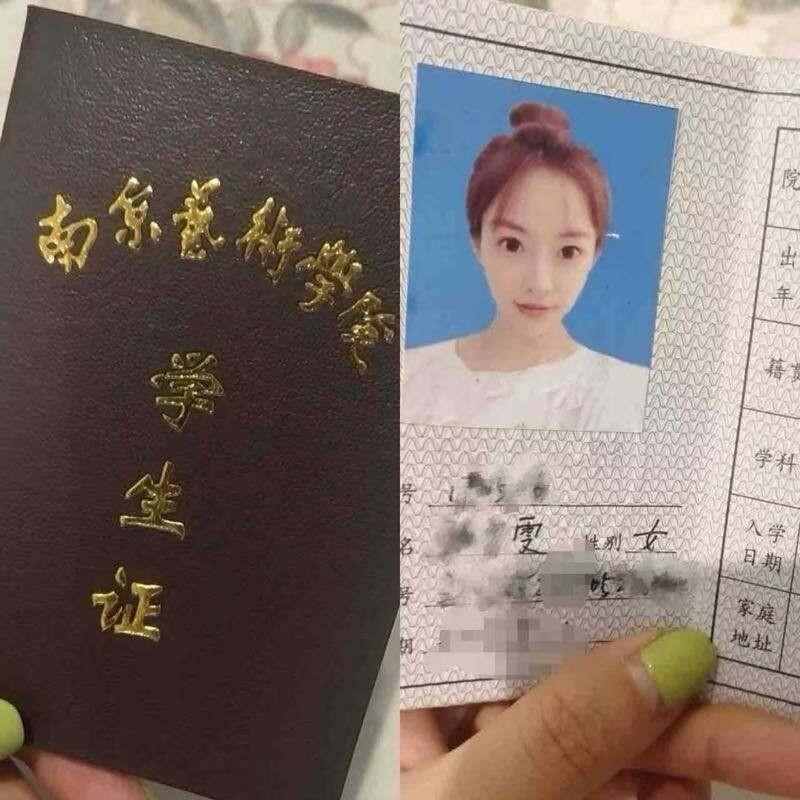 南京艺術學院
学
生
证
号
名 雯 性别 女
号
期
院
出
年
籍贯
学科
入学
日期
家庭
地址